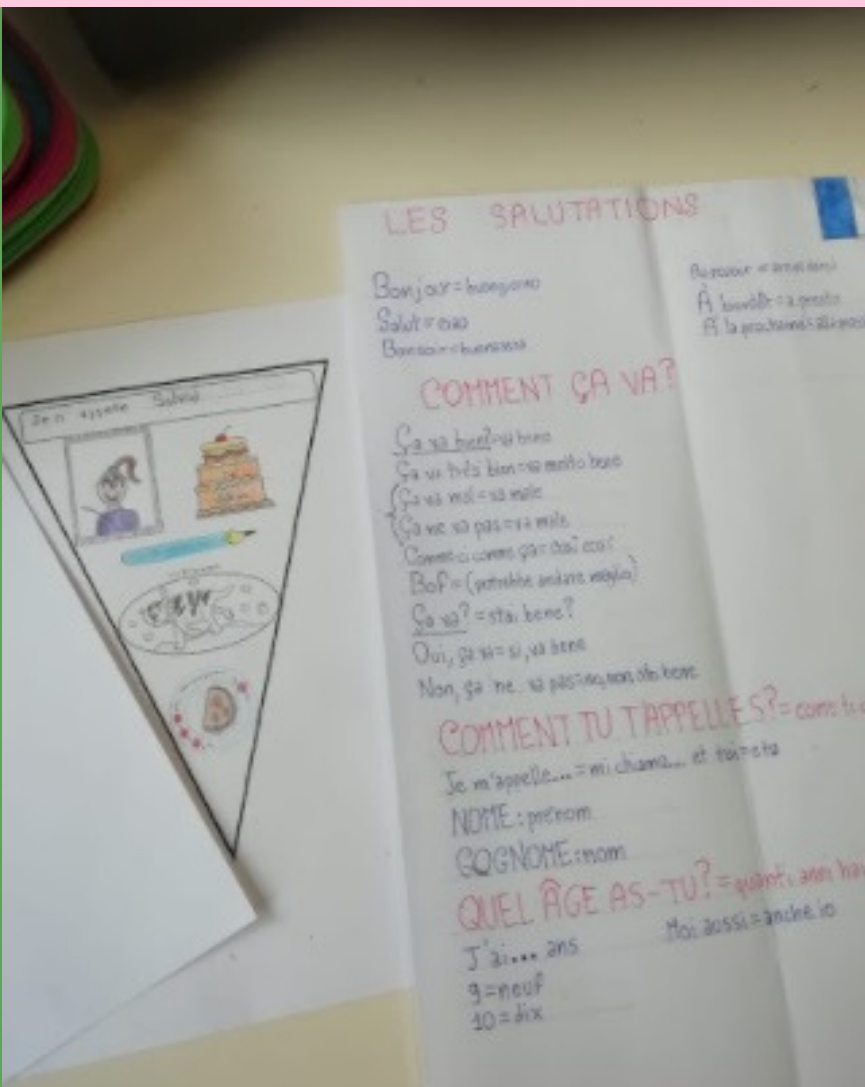 LES SALUTATIONS
Bonjour = buongiorno
Salut = ciao
Bonsoir = buonasera
Au revoir = arrivederci
À bientôt = a presto
À la prochaine =
COMMENT ÇA VA?
Ça va bien? = va bene
Ça va très bien = va molto bene
Ça va mal = va male
Ça ne va pas = va male
Comme ci comme ça = così così
Bof = (potrebbe andare meglio)
Ça va? = stai bene?
Oui, ça va = si, va bene
Non, ça ne va pas = no, non sto bene
COMMENT TU T'APPELLES? = come ti
Je m'appelle... = mi chiamo... et toi = e tu
NOME: prénom
COGNOME: nom
QUEL ÂGE AS-TU? = quanti anni hai
J'ai... ans
Moi aussi = anche io
9 = neuf
10 = dix
Je m'appelle